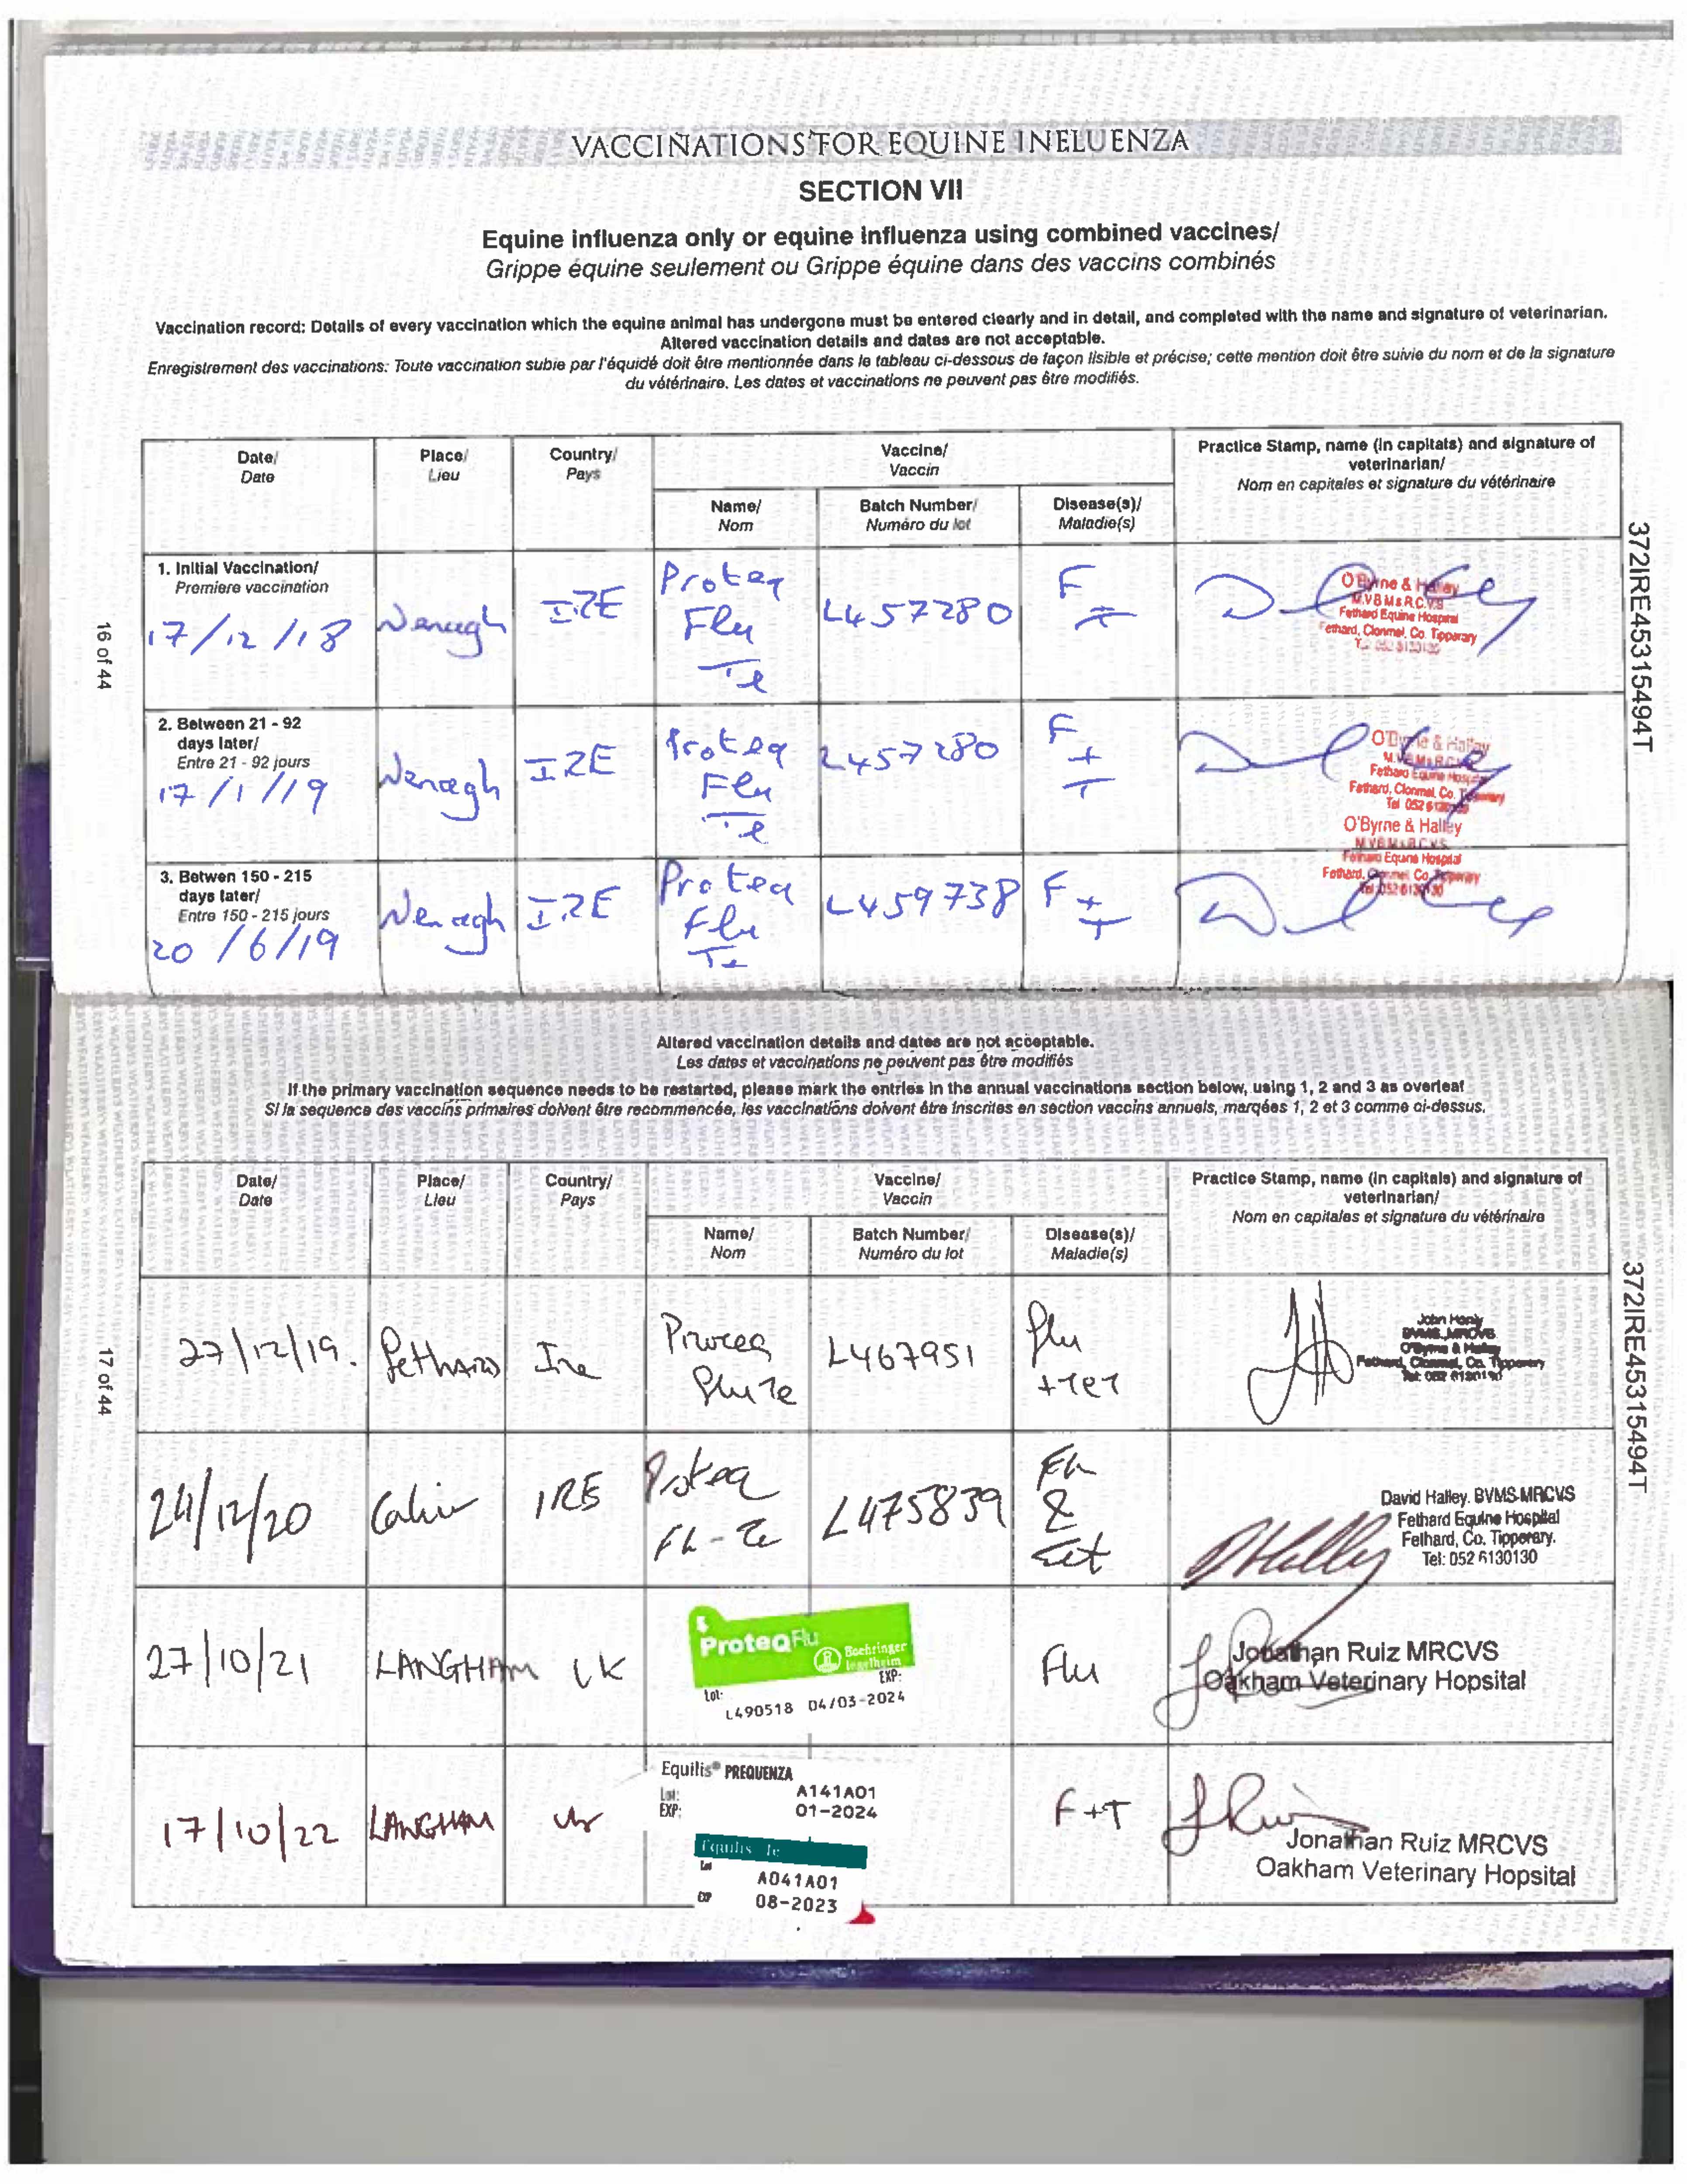 VACCINATIONS FOR EQUINE INFLUENZA
SECTION VII
Equine influenza only or equine influenza using combined vaccines/
Grippe équine seulement ou Grippe équine dans des vaccins combinés
Vaccination record: Details of every vaccination which the equine animal has undergone must be entered clearly and in detail, and completed with the name and signature of veterinarian.
Altered vaccination details and dates are not acceptable.
Enregistrement des vaccinations: Toute vaccination subie par l'équidé doit être mentionnée dans le tableau ci-dessous de façon lisible et précise; cette mention doit être suivie du nom et de la signature
du vétérinaire. Les dates et vaccinations ne peuvent pas être modifiés.
Date/ Place/ Country/ Vaccine/ Practice Stamp, name (in capitals) and signature of
Date Lieu Pays Vaccin veterinarian/
Nom en capitales et signature du vétérinaire
Name/ Batch Number/ Disease(s)/
Nom Numéro du lot Maladie(s)
1. Initial Vaccination/
Premiere vaccination
17/12/18 Nenagh IRE Proteq Flu Te L457280 F + T
O'Byrne & Halley
M.V.B M.R.C.V.S
Fethard Equine Hospital
Fethard, Clonmel, Co. Tipperary
2. Between 21 - 92
days later/
Entre 21 - 92 jours
17/1/19 Nenagh IRE Proteq Flu Te L457280 F + T
O'Byrne & Halley
M.V.B M.R.C.V.S
Fethard Equine Hospital
Fethard, Clonmel, Co. Tipperary
Tel 052 6130130
3. Betwen 150 - 215
days later/
Entre 150 - 215 jours
20/6/19 Nenagh IRE Proteq Flu Te L459738 F + T
O'Byrne & Halley
M.V.B M.R.C.V.S
Fethard Equine Hospital
Fethard, Clonmel, Co. Tipperary
Tel: 052 6130130
16 of 44
372IRE45315494T
Altered vaccination details and dates are not acceptable.
Les dates et vaccinations ne peuvent pas être modifiés
If the primary vaccination sequence needs to be restarted, please mark the entries in the annual vaccinations section below, using 1, 2 and 3 as overleaf
Si la sequence des vaccins primaires doivent être recommencée, les vaccinations doivent être inscrites en section vaccins annuels, marqées 1, 2 et 3 comme ci-dessus.
Date/ Place/ Country/ Vaccine/ Practice Stamp, name (in capitals) and signature of
Date Lieu Pays Vaccin veterinarian/
Nom en capitales et signature du vétérinaire
Name/ Batch Number/ Disease(s)/
Nom Numéro du lot Maladie(s)
27/12/19. Fethard Ire Proteq Flu Te L467951 Flu + Tet
John Hanly
BVMS, MRCVS
O'Byrne & Halley
Fethard, Clonmel, Co. Tipperary
Tel: 052 6130130
24/12/20 Cahir IRE Proteq Flu-Te L475839 Flu & Tet
David Halley. BVMS MRCVS
Fethard Equine Hospital
Fethard, Co. Tipperary.
Tel: 052 6130130
27/10/21 LANGHAM UK
ProteqFlu
Boehringer
Ingelheim
Lot: EXP:
L490518 04/03-2024
Flu
Jonathan Ruiz MRCVS
Oakham Veterinary Hopsital
17/10/22 LANGHAM UK
Equilis® PREQUENZA
Lot: A141A01
EXP: 01-2024
Equilis Te
Lot A041A01
EXP 08-2023
F+T
Jonathan Ruiz MRCVS
Oakham Veterinary Hopsital
17 of 44
372IRE45315494T